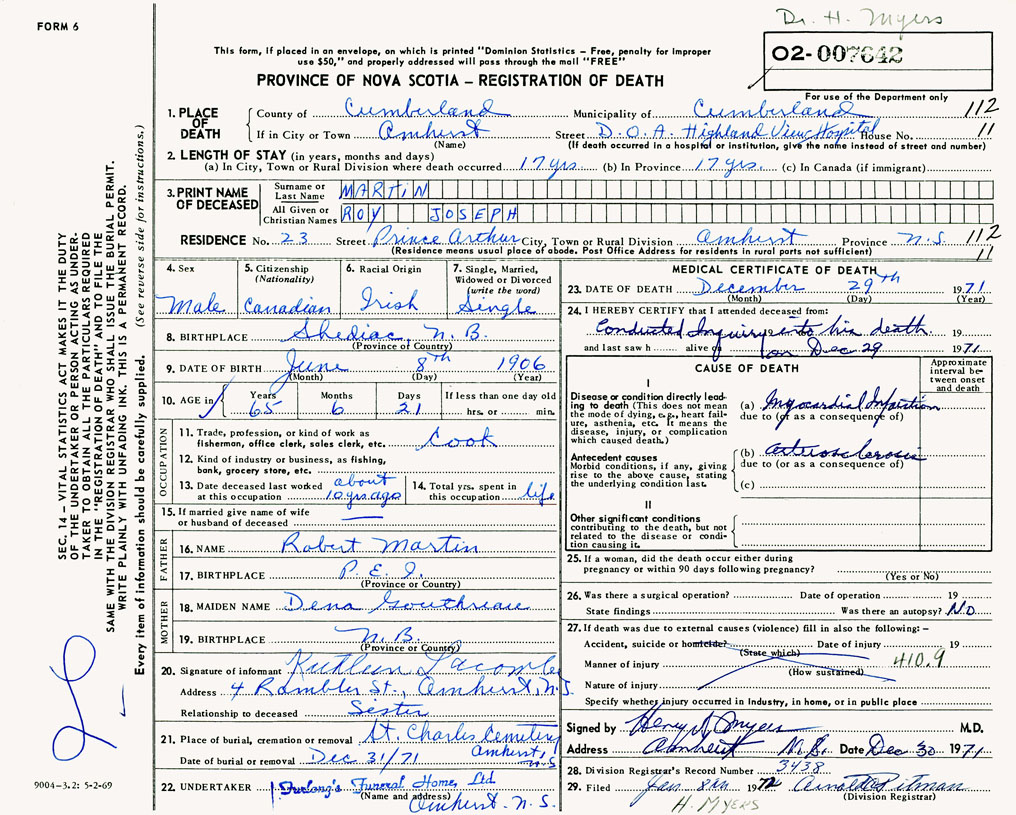 Dr. H. Myers
FORM 6
This form, if placed in an envelope, on which is printed "Dominion Statistics – Free, penalty for improper
use $50," and properly addressed will pass through the mail "FREE"
O2-007642
PROVINCE OF NOVA SCOTIA – REGISTRATION OF DEATH
For use of the Department only
1. PLACE OF DEATH County of Cumberland Municipality of Cumberland 112
If in City or Town Amherst Street D.O.A. Highland View Hospital House No. 11
(Name) (If death occurred in a hospital or institution, give the name instead of street and number)
2. LENGTH OF STAY (in years, months and days)
(a) In City, Town or Rural Division where death occurred 17 yrs. (b) In Province 17 yrs. (c) In Canada (if immigrant)
3. PRINT NAME OF DECEASED Surname or Last Name MARTIN
All Given or Christian Names ROY JOSEPH
RESIDENCE No. 23 Street Prince Arthur City, Town or Rural Division Amherst Province N.S. 112
(Residence means usual place of abode. Post Office Address for residents in rural parts not sufficient) 11
4. Sex Male
5. Citizenship (Nationality) Canadian
6. Racial Origin Irish
7. Single, Married, Widowed or Divorced (write the word) Single
8. BIRTHPLACE Shediac, N.B.
(Province of Country)
9. DATE OF BIRTH June 8th 1906
(Month) (Day) (Year)
10. AGE in Years 65 Months 6 Days 21 If less than one day old hrs. or min.
OCCUPATION
11. Trade, profession, or kind of work as
fisherman, office clerk, sales clerk, etc. Cook
12. Kind of industry or business, as fishing,
bank, grocery store, etc.
13. Date deceased last worked at this occupation about 10 yrs ago
14. Total yrs. spent in this occupation life
15. If married give name of wife
or husband of deceased
FATHER
16. NAME Robert Martin
17. BIRTHPLACE P.E.I.
(Province or Country)
MOTHER
18. MAIDEN NAME Dena
19. BIRTHPLACE N.B.
(Province or Country)
20. Signature of informant Lacombe
Address 4 Rambler St., Amherst, N.S.
Relationship to deceased Sister
21. Place of burial, cremation or removal St. Charles Cemetery
Amherst, N.S.
Date of burial or removal Dec 31/71
22. UNDERTAKER Furlong's Funeral Home, Ltd
(Name and address) Amherst N.S.
MEDICAL CERTIFICATE OF DEATH
23. DATE OF DEATH December 29th 1971
(Month) (Day) (Year)
24. I HEREBY CERTIFY that I attended deceased from:
Conducted Inquiry into his death 19
and last saw h alive on Dec 29 1971
CAUSE OF DEATH
Approximate interval between onset and death
I
Disease or condition directly leading to death (This does not mean the mode of dying, e.g., heart failure, asthenia, etc. It means the disease, injury, or complication which caused death.)
(a) Myocardial Infarction
due to (or as a consequence of)
Antecedent causes
Morbid conditions, if any, giving rise to the above cause, stating the underlying condition last.
(b) arteriosclerosis
due to (or as a consequence of)
(c)
II
Other significant conditions
contributing to the death, but not related to the disease or condition causing it.
25. If a woman, did the death occur either during
pregnancy or within 90 days following pregnancy?
(Yes or No)
26. Was there a surgical operation? Date of operation 19
State findings Was there an autopsy? NO
27. If death was due to external causes (violence) fill in also the following: –
Accident, suicide or homicide? Date of injury 19
(State which)
Manner of injury 410.9
(How sustained)
Nature of injury
Specify whether injury occurred in Industry, in home, or in public place
Signed by Henry Myers M.D.
Address Amherst N.S. Date Dec 30 1971
28. Division Registrar's Record Number 3438
29. Filed Jan. 8th 1972 Pitman
(Division Registrar)
H. MYERS
SEC. 14 – VITAL STATISTICS ACT MAKES IT THE DUTY
OF THE UNDERTAKER OR PERSON ACTING AS UNDER-
TAKER TO OBTAIN ALL THE PARTICULARS REQUIRED
IN THE "REGISTRATION OF DEATH" AND TO FILE THE
SAME WITH THE DIVISION REGISTRAR WHO SHALL ISSUE THE BURIAL PERMIT.
WRITE PLAINLY WITH UNFADING INK. THIS IS A PERMANENT RECORD.
Every item of information should be carefully supplied. (See reverse side for instructions.)
9004-3.2: 5-2-69